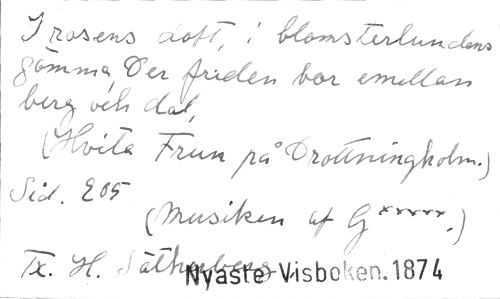 I rosens doft, i blomsterlundens
gömma, Der friden bor emellan
berg och dal,
(Hvita Frun på Drottningholm.)
Sid. 205
(Musiken af G*****.)
Tx. H. Sätherberg
Nyaste Visboken. 1874